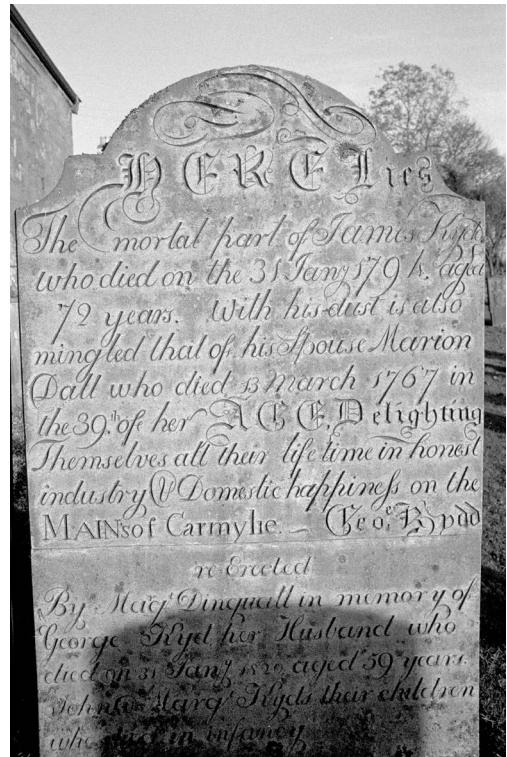 HERE Lies
The mortal part of James Kyd,
who died on the 31 Jany 1794. aged
72 years. With his dust is also
mingled that of his Spouse Marion
Dall who died 13 March 1767 in
the 39.th of her AGE, Delighting
Themselves all their life time in honest
industry & Domestic happiness on the
MAINs of Carmylie. — Geo:
re-Erected
By Margt Dinguall in memory of
George Kyd her Husband who
died on 31 Jany aged 59 years.
John & Margt Kyds their children
who died in infancy